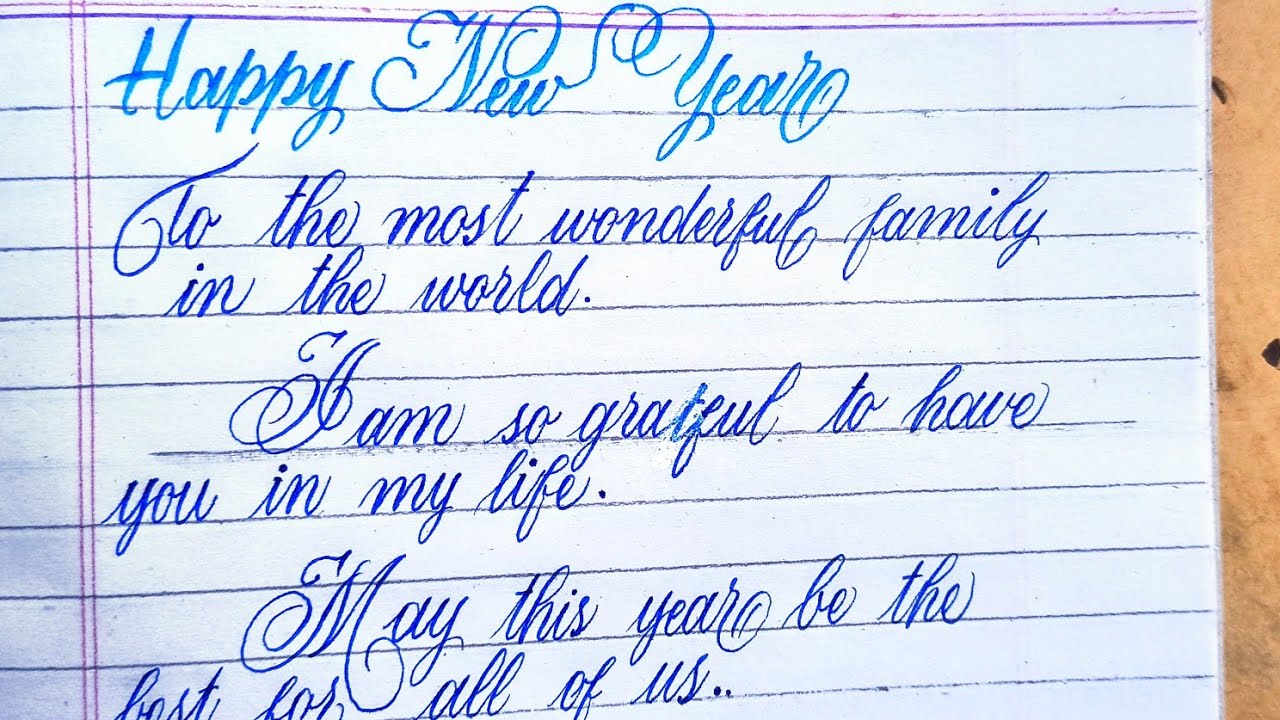 Happy New Year
To the most wonderful family
in the world.
I am so grateful to have
you in my life.
May this year be the
best for all of us..